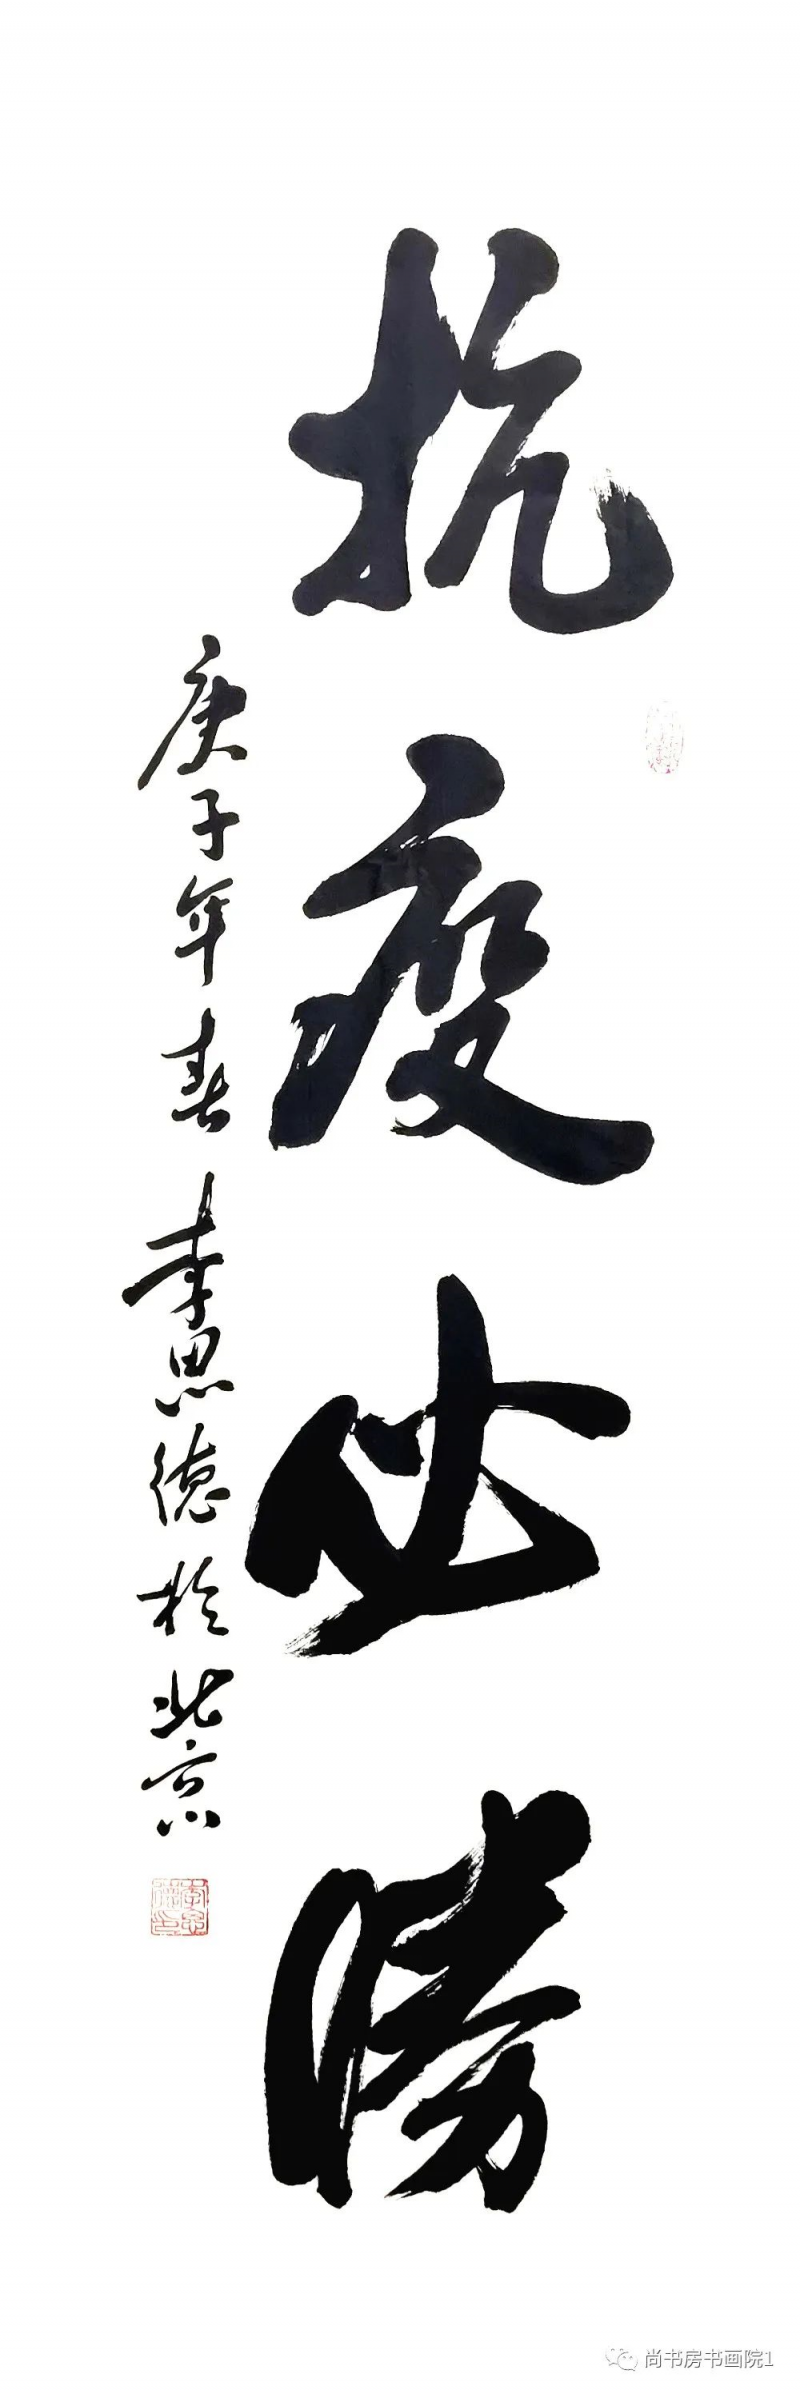 抗疫必勝
庚子年春李思德於北京
尚书房书画院1